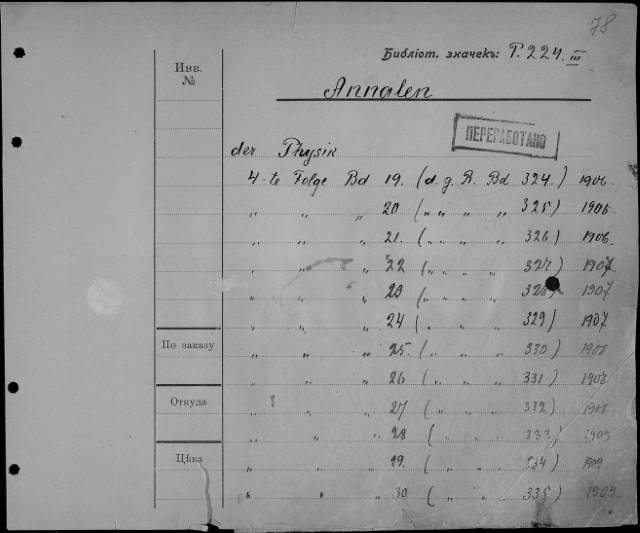 78
Библіот. значекъ: P.224.III
Инв.
№
Annalen
ПЕРЕРАБОТАНО
der Physik
4-te Folge Bd 19. (d. g. R. Bd 324.) 1906.
" " " 20 (" " " " 325) 1906
" " " 21. (" " " " 326) 1906.
" " " 22 (" " " " 327) 1907
" " " 23 (" " " " 328) 1907
" " " 24 (" " " " 329) 1907
По заказу
" " " 25. (" " " " 330) 1908
" " " 26 (" " " " 331) 1908
Откуда
" " " 27 (" " " " 332) 1908
" " " 28 (" " " " 333) 1909
Цѣна
" " " 29. (" " " " 334) 1909
" " " 30 (" " " " 335) 1909.